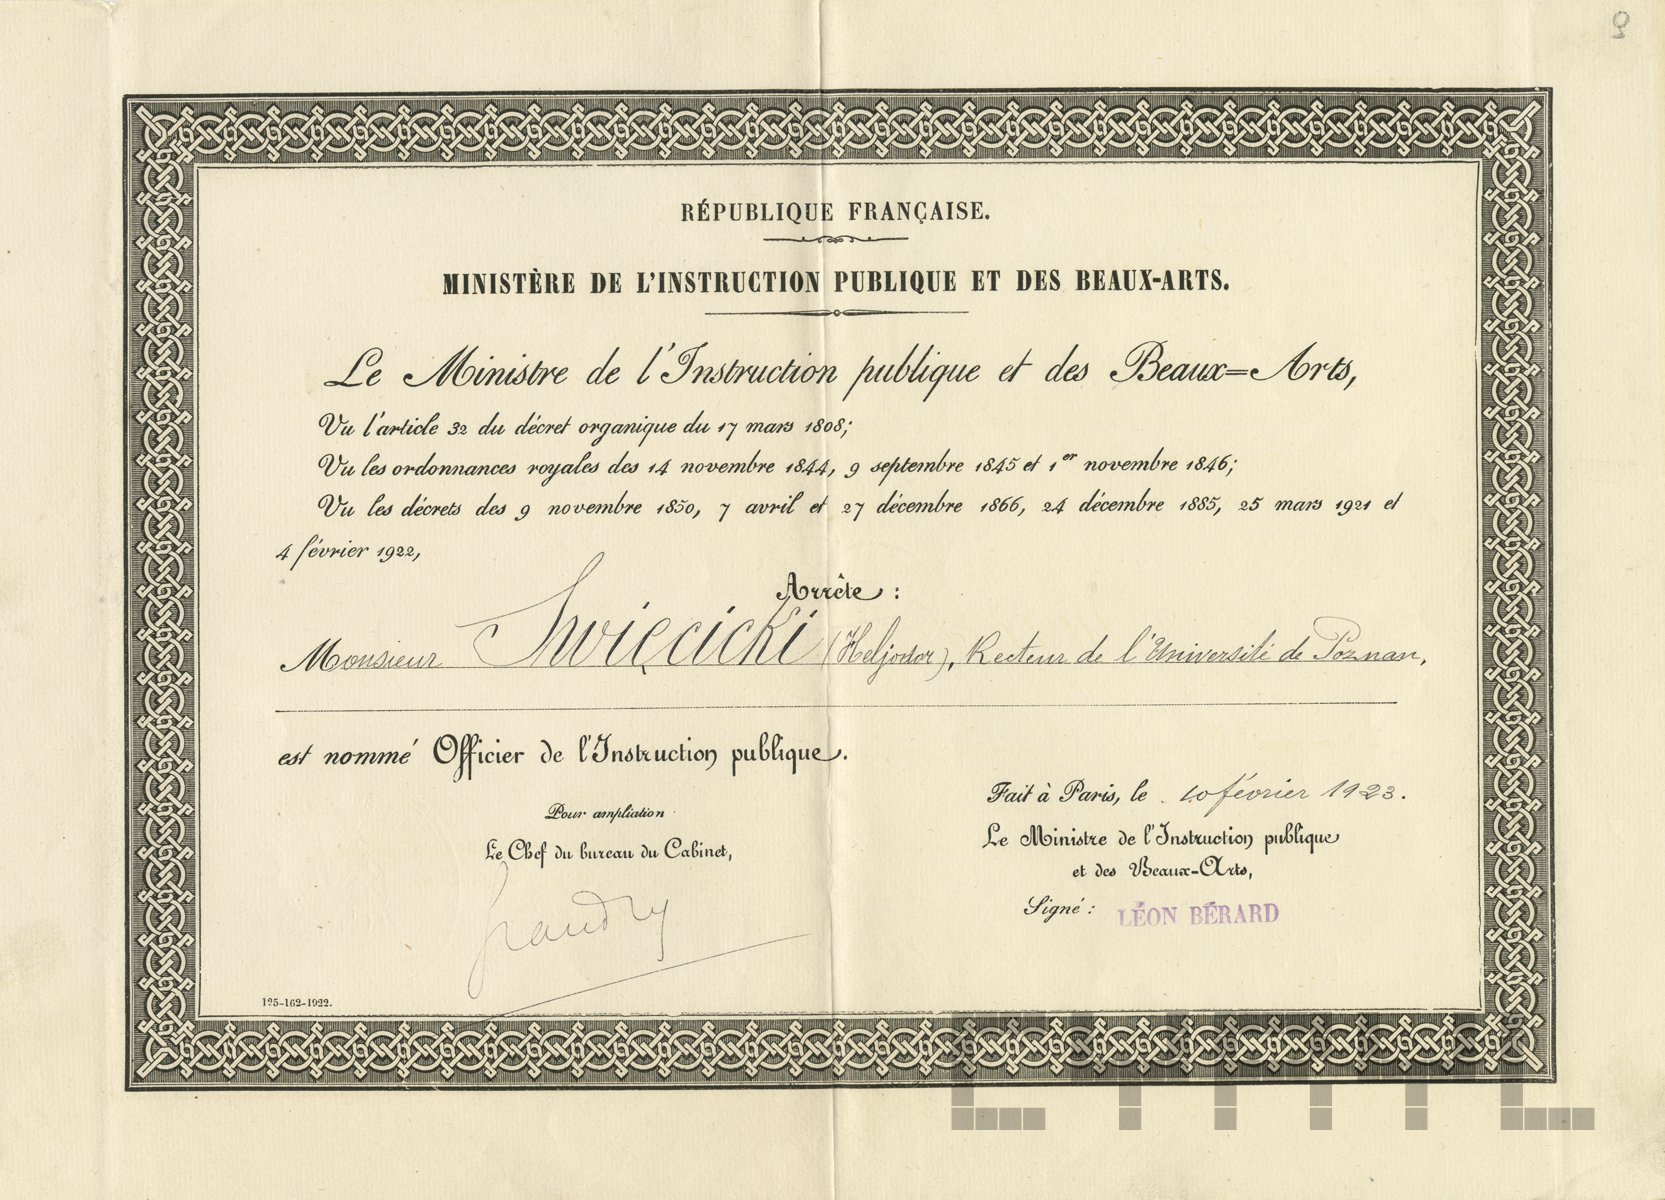 RÉPUBLIQUE FRANÇAISE.
MINISTÈRE DE L'INSTRUCTION PUBLIQUE ET DES BEAUX-ARTS.
Le Ministre de l'Instruction publique et des Beaux=Arts,
Vu l'article 32 du décret organique du 17 mars 1808;
Vu les ordonnances royales des 14 novembre 1844, 9 septembre 1845 et 1er novembre 1846;
Vu les décrets des 9 novembre 1850, 7 avril et 27 décembre 1866, 24 décembre 1885, 25 mars 1921 et
4 février 1922,
Arrête :
Monsieur Swięcicki (Heljodor), Recteur de l'Université de Poznan,
est nommé Officier de l'Instruction publique.
Fait à Paris, le 10 février 1923.
Pour ampliation
Le Chef du bureau du Cabinet,
Le Ministre de l'Instruction publique
et des Beaux-Arts,
Signé : LÉON BÉRARD
125-162-1922.